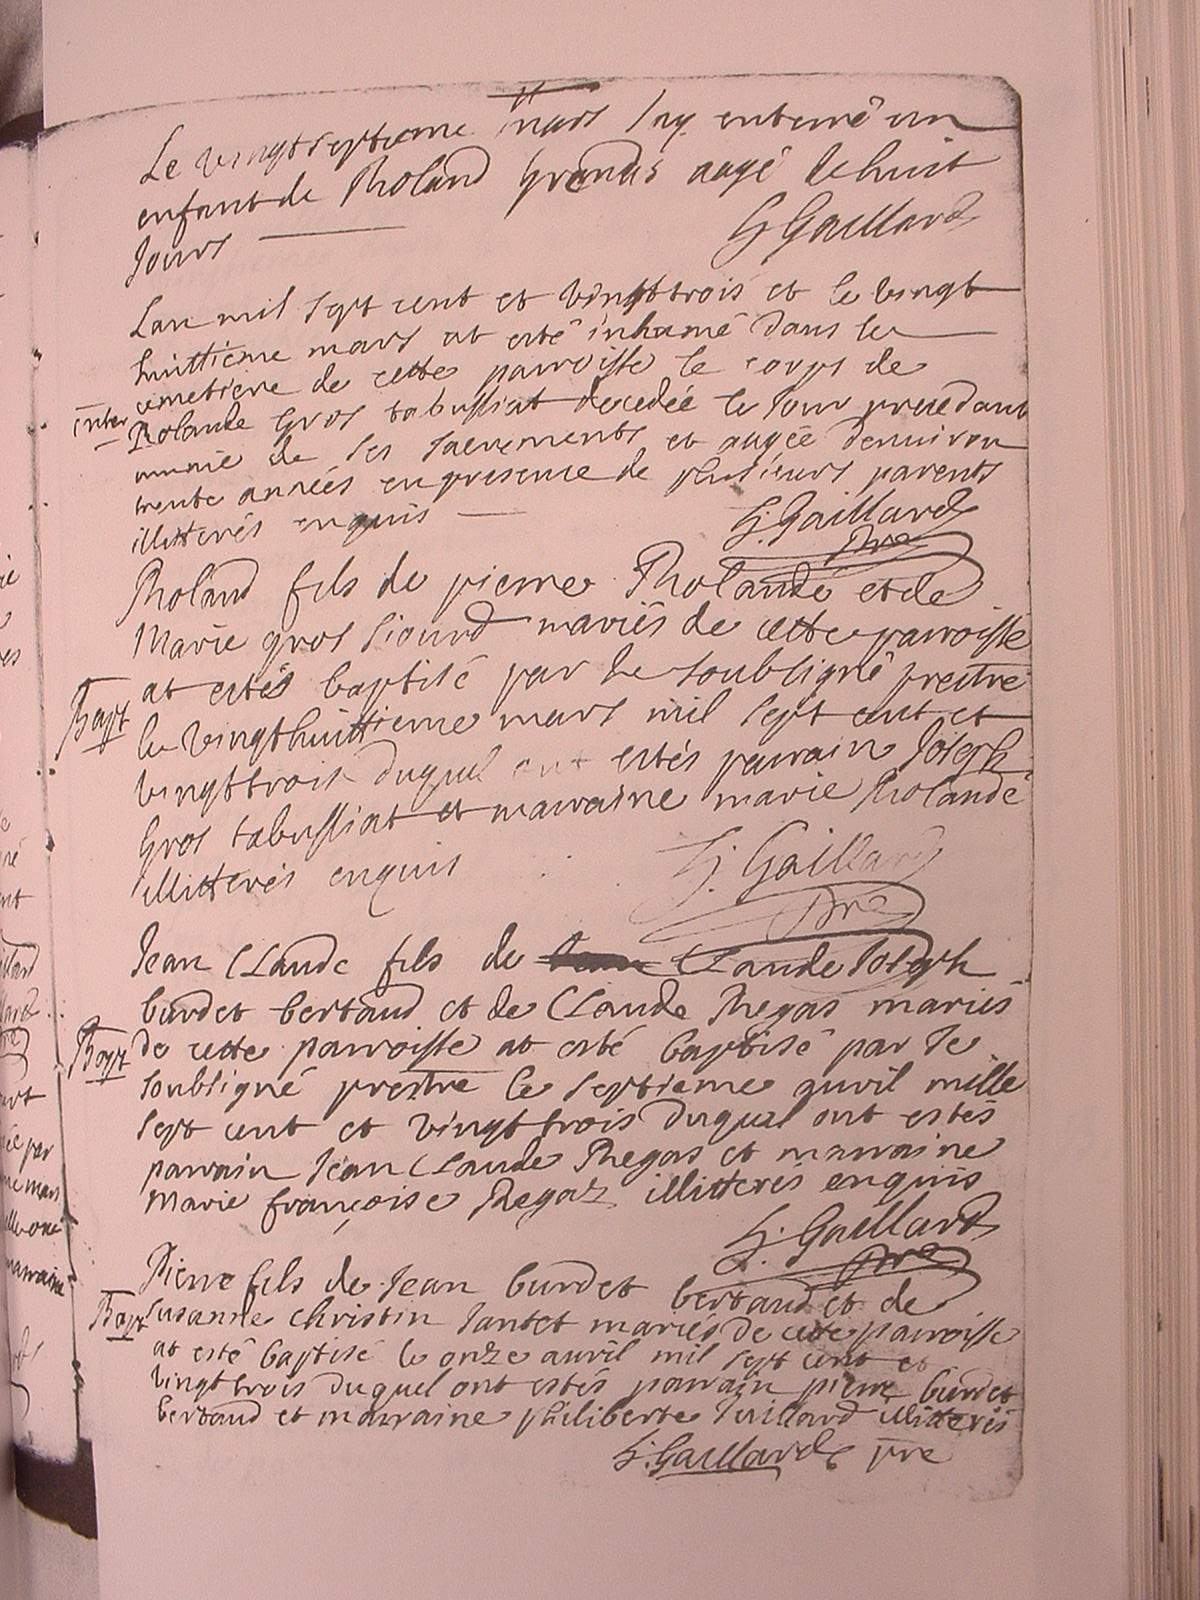 Le vingtseptieme mars Jay enterré un
enfant de Roland grandis aagé de huit
Jours
G Gaillard
Lan mil sept cent et vingttrois et le vingt
huittieme mars at esté inhumé dans le
cemetiere de cette parroisse le corps de
inter Rolande gros tabussiat decedée le Jour precedant
munie de ses sacrements et aagée denuiron
trente années en presence de plusieurs parents
illitterés enquis
G. Gaillard
pre
Roland fils de pierre Rolande et de
Marie gros Jiourd mariés de cette parroisse
Bapt at estés baptisé par Je soubsigné prestre
le vingthuittieme mars mil sept cent et
vingttrois duquel ont estés parrain Joseph
gros tabussiat et marraine marie Rolande
illitterés enquis
G. Gaillard
pre
Jean Claude fils de Claude Joseph
burdet bertaud et de Claude Regas mariés
Bapt de cette parroisse at esté baptisé par Je
soubsigné prestre le septieme auril mille
sept cent et vingttrois duquel ont estés
parrain Jean Claude Regas et marraine
Marie françoise Regaz illitterés enquis
G. Gaillard
pre
Pierre fils de Jean burdet bertaud et de
Bapt susanne christin Jantet mariés de cette parroisse
at esté baptisé le onze auril mil sept cent et
vingttrois duquel ont estés parrain pierre burdet
bertaud et marraine philiberte Juillard illitterés
G. Gaillard pre